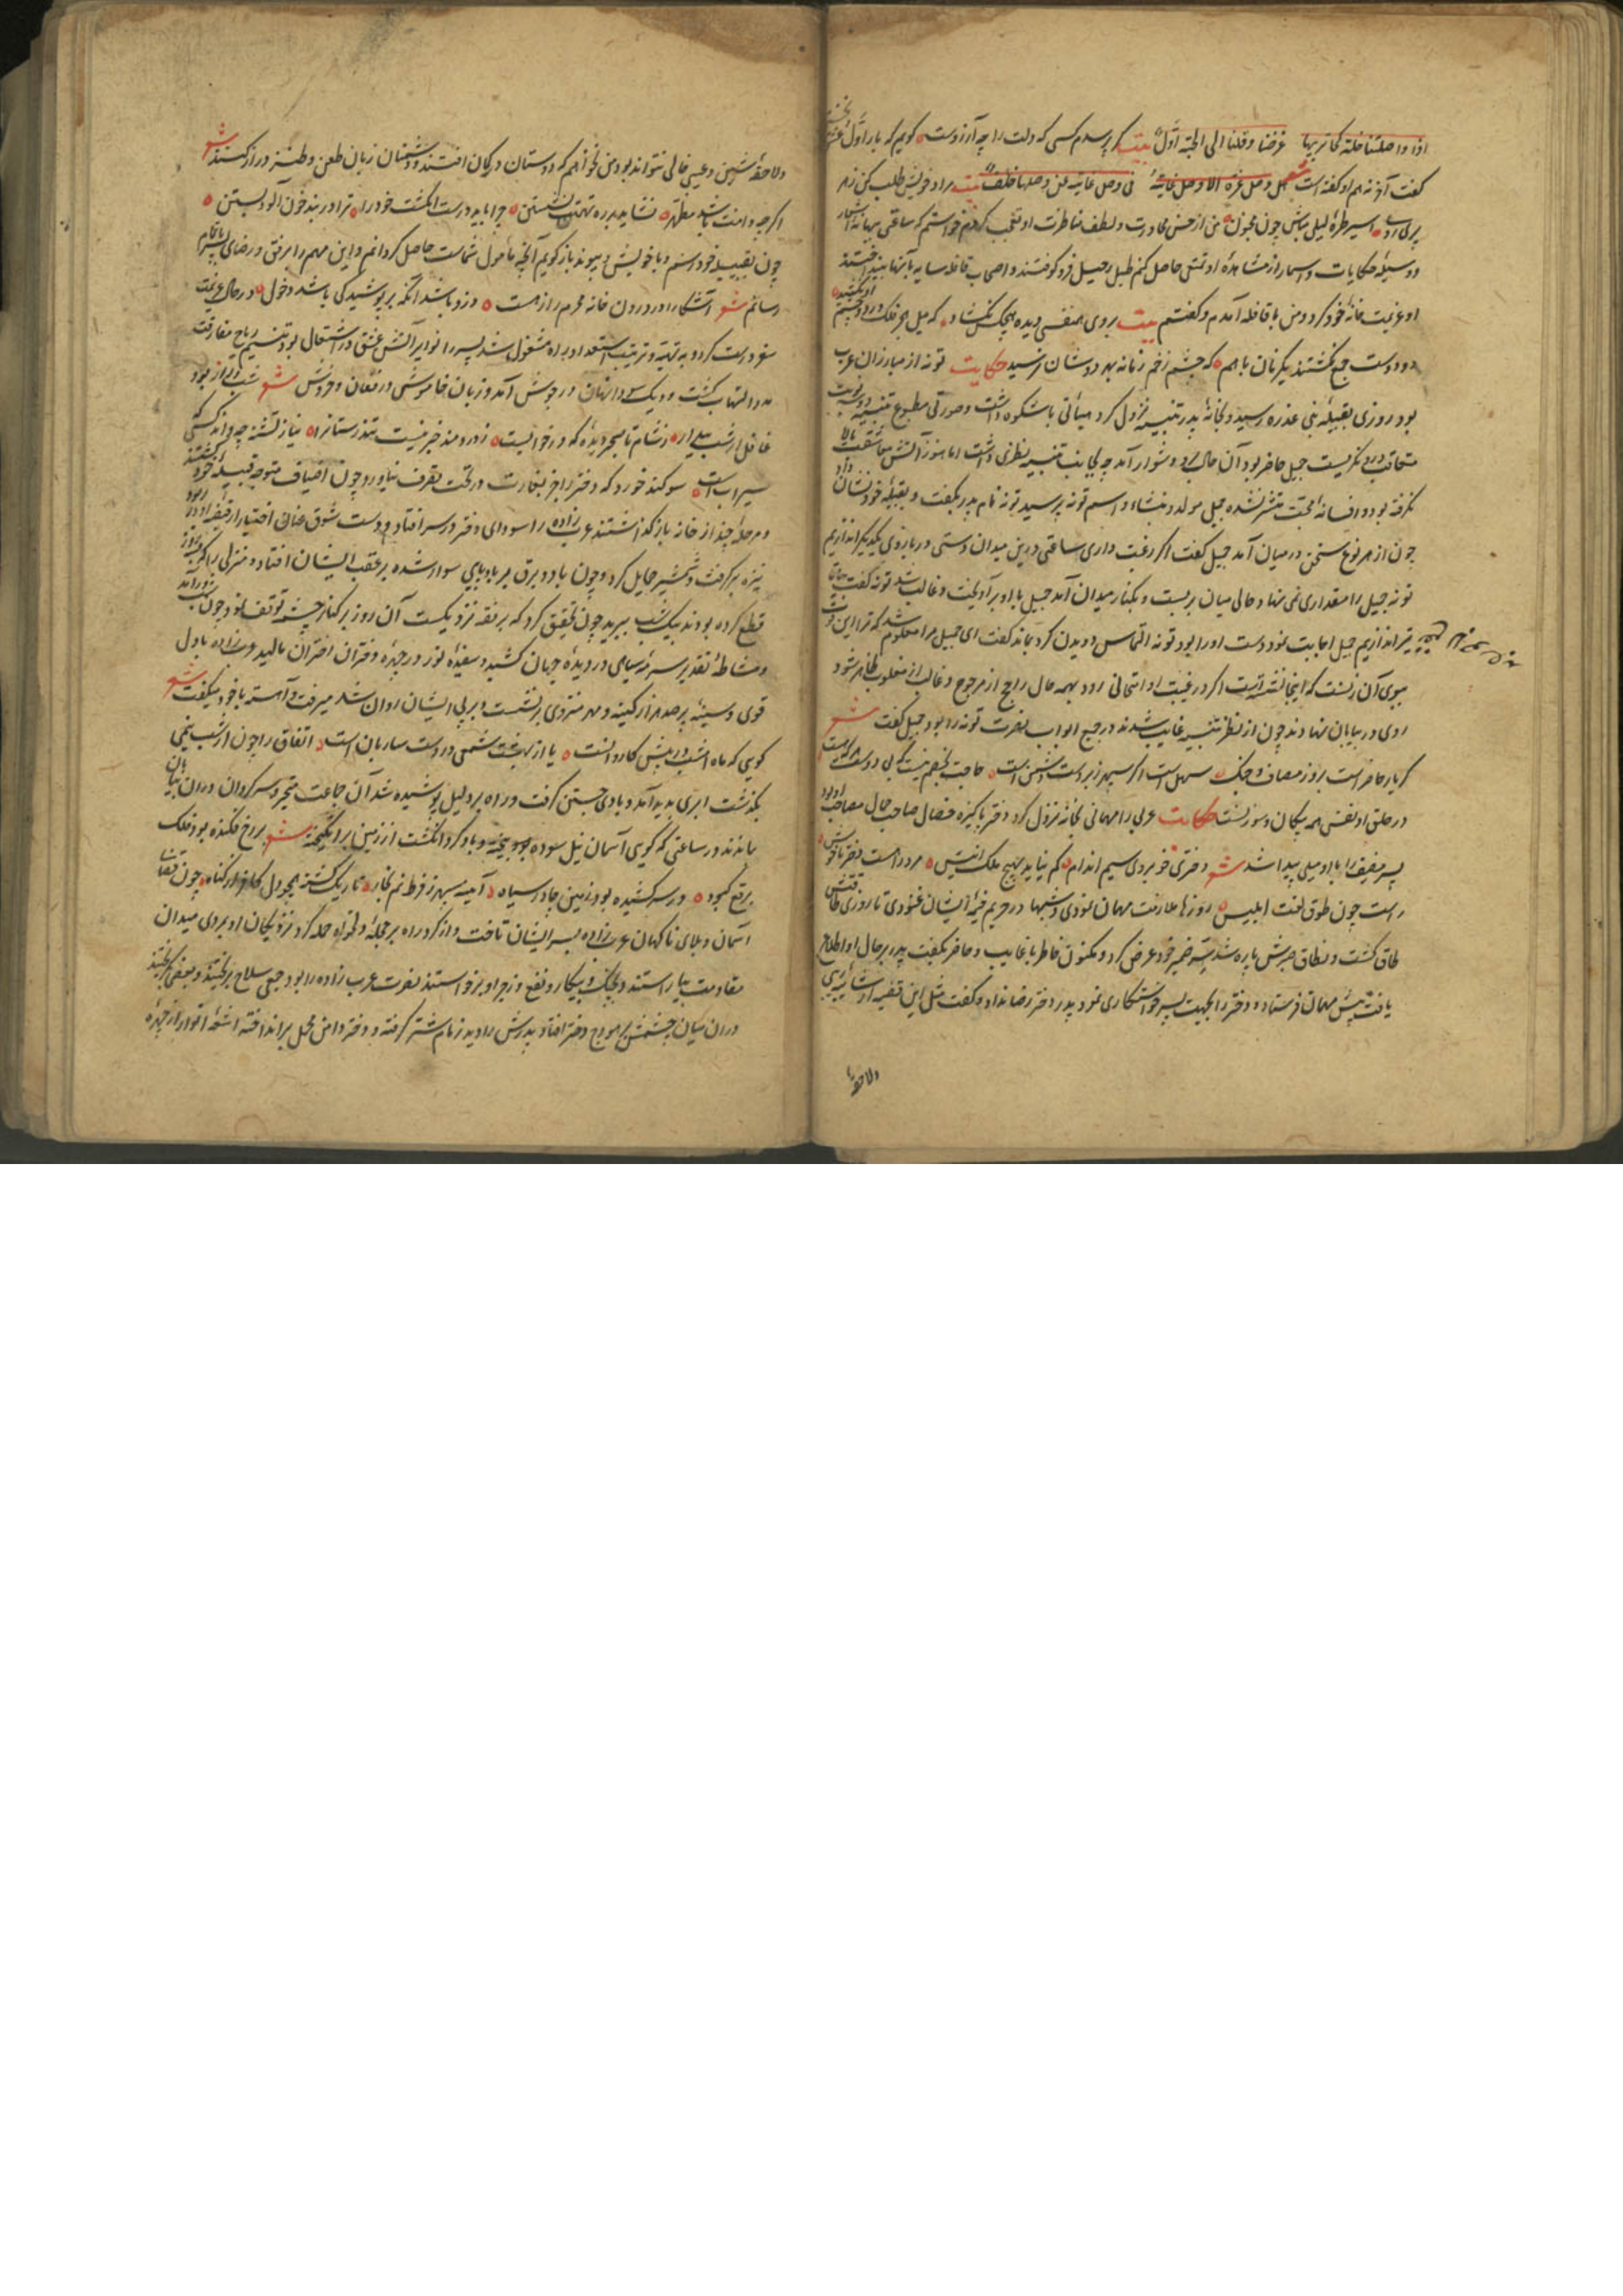 اذا واصلتنا خلة کاتریها غرضنا وقلنا الی الحبه اول بیت کر پرسدم کسی که دلت را چه آرزوست کویم که یار اول
کفت آخر نه هم او کفته است شعر وصل عزة الا وصل غانیة فی وصل غانیة من وصلها خلف بیت مراد خویش طلب کن ز هر
اسیر طره لیلی مباش چون مجنون من از حسن محاورت و لطف مناظرت او تعجب کردم خواستم که ساعتی ببهانه اشعار
و وسیله حکایات و اسمار از مشاهده او تمتی حاصل کنم طبل رحیل فرو کوفتند و اصحاب قافله سایه بانها بینداختند
او عزیمت خانه خود کرد و من با قافله آمدم و کفتم بیت بروی همنفسی دیده هیچک نکشاد که میل هجر فلک در دو چشم او نکشید
دو دوست جمع نکشتند یکزمان با هم که چشم زخم زمانه بهر دوشان نرسید حکایت توبه از مبارزان عرب
بود روزی بقبیله بنی عذره رسید و بخانه پدر بثینه نزول کرد هیأتی باشکوه داشت و صورتی مطبوع بثینه
جمیل حاضر بود آن حال برو دشوار آمد چه بجانب بثینه نظری داشت اما هنوز آتش معاشقت بالا
نکرفته بود و افسانه محبت منتشر نشده جمیل مولد و منشاء و اسم توبه پرسید توبه نام پدر بکفت و بقبیله خود نشان داد
چون از هر نوع سخن در میان آمد جمیل کفت اکر رغبت داری ساعتی درین میدان دستی در بازوی یکدیکر اندازیم
توبه جمیل را مقداری نمی نهاد حالی میان بربست و بکنار میدان آمد جمیل با او برآویخت و غالب شد توبه کفت بیا تا
تیر اندازیم جمیل اجابت نمود دست او را بود توبه التماس دویدن کرد بماند کفت ای جمیل مرا معلوم شد که ترا این قوت
ببوی آن زنست که اینجا نشسته است اکر در غیبت او امتحانی رود بهمه حال راجح از مرجوح و غالب از مغلوب ظاهر شود
روی در بیابان نهادند چون از نظر بثینه غایب شدند در جمیع ابواب نصرت توبه را بود جمیل کفت شعر
کر یار حاضر است بروز مصاف و جنک سهل است اکر سپهر زبردست دشمن است حاجت بخصم نیست کبی دوست هر که هست
در حلق او نفس همه پیکان و سوزنست حکایت عربی را مهمانی بخانه نزول کرد دختر پاکیزه خصال صاحب جمال مصاحب او بود
پسر مضیف را با او میلی پیدا شد شعر دختری خوبروی سیم اندام کم نیاید بهیچ ملک انیس مرد را هست دختر ناخوش
راست چون طوق لعنت ابلیس روزها ملازمت مهمان نمودی و شبها در حریم خیمه ایشان غنودی تا روزی طاقتش
طاق کشت و نطاق صبرش پاره شد سر ضمیر خود عرض کرد و مکنون خاطر با غایب و حاضر بکفت پدر بر حال او اطلاع
یافت پیش مهمان فرستاد و دختر را بجهت پسر خواستکاری نمود پدر دختر رضا نداد و کفت مثل این قضیه از شائبه ریبی
ولاحقه
ولاحقه شین و عیبی خالی نتواند بود و من نخواهم که دوستان در کمان افتند و دشمنان زبان طعن و طنز دراز کنند شعر
اکرچه دامنت باشد مطهر نشاید بر ره تهمت نشستن چرا باید درست انکشت خود را ترا در بند خون آلود بستن
چون بقبیله خود رسم و با خویش و پیوند بازکویم آنچه مأمول شماست حاصل کردانم و این مهم را بر وفق و رضای پسر باتمام
رسانم شعر آشکارا در درون خانه محرم را زهست دزد باشد آنکه بر پوشیدکی باشد دخول در حال عزیمت
سفر درست کرد و به تهیه و ترتیب استعداد راه مشغول شد پسر را نوایر آتش عشق در اشتعال بود بنسیم ریاح مفارقت
در التهاب کشت و دیک سودا نهان در جوش آمد و زبان خاموشی در فغان و خروش شعر شب دراز بود
غافل از شب بیدار ز شام تا بسحر دیده که در خوابیست ز دردمند خبر نیست تندرستانرا نیاز تشنه چه داند کسی که
سیرابست سوکند خورد که دختر را جز بغارت در تحت تصرف نیاورد چون اضیاف متوجه قبیله خود کشتند
و مرحله چند از خانه بازکذاشتند عرب زاده را سودای دختر در سر افتاد و دست شوق عنان اختیار از قبضه او در ربود
نیزه برکرفت و شمشیر حمایل کرد و چون باد و برق بر بادپایی سوار شده بر عقب ایشان افتاد و منزلی را که بروز
قطع کرده بودند بیک شب ببرید چون تحقیق کرد که بر بقعه نزدیکست آن روز بر کنار چشمه توقف نمود و چون شب درآمد
و مشاطه تقدیر سرمه سیاهی در دیده جهان کشید و سفیده نور در چهره دختران اختران مالید عرب زاده با دل
قوی و سینه پر صد هزار کینه و مهر منزوی برنشست و بر پی ایشان روان شد میرفت و آهسته با خود میکفت شعر
کویی که ماه امشب در پیش کاروانست یا از بهشت شمعی در دست ساربان است اتفاق را چون از شب نیمی
بکذشت ابری پدید آمد و بادی جستن کرفت و راه بر دلیل پوشیده شد آن جماعت متحیر و سرکردان در آن بیابان
بماندند در ساعتی که کویی آسمان نیل سوده می بیخت و باد کرد انکشت از زمین برانکیخته شعر بر رخ فکنده بود فلک
برقع کبود در سر کشیده بود زمین چادر سیاه آینه سپهر ز فرط نم بخار تاریک کشته همچو دل کافر از کناه چون قضای
آسمان و بلای ناکهان عرب زاده بسر ایشان تاخت و از کرد راه بر محله دلخواه حمله کرد نزدیکان او بروی میدان
مقاومت بیاراستند و بجنک و پیکار و نفع و زجر او برخواستند نصرت عرب زاده را بود جمعی سلاح بریختند و بعضی بکریختند
در آن میان چشمش بر هودج دختر افتاد پدرش را دید زمام شتر کرفته و دختر دامن محمل برانداخته اشعه انوار از چهره